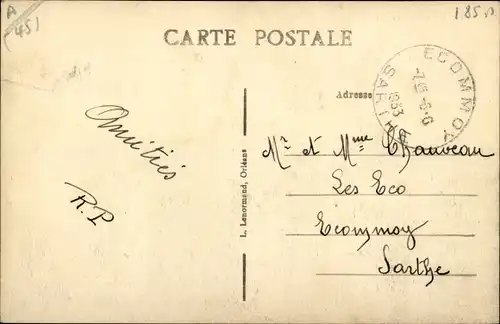 A
(45)
185 n
CARTE POSTALE
ECOMMOY
7 45 - 6 - 6
1933
SARTHE
Adresse
Amitiés
R.P
L. Lenormand, Orléans
Mr et Mme Chauveau
Les Eco
Ecommoy
Sarthe